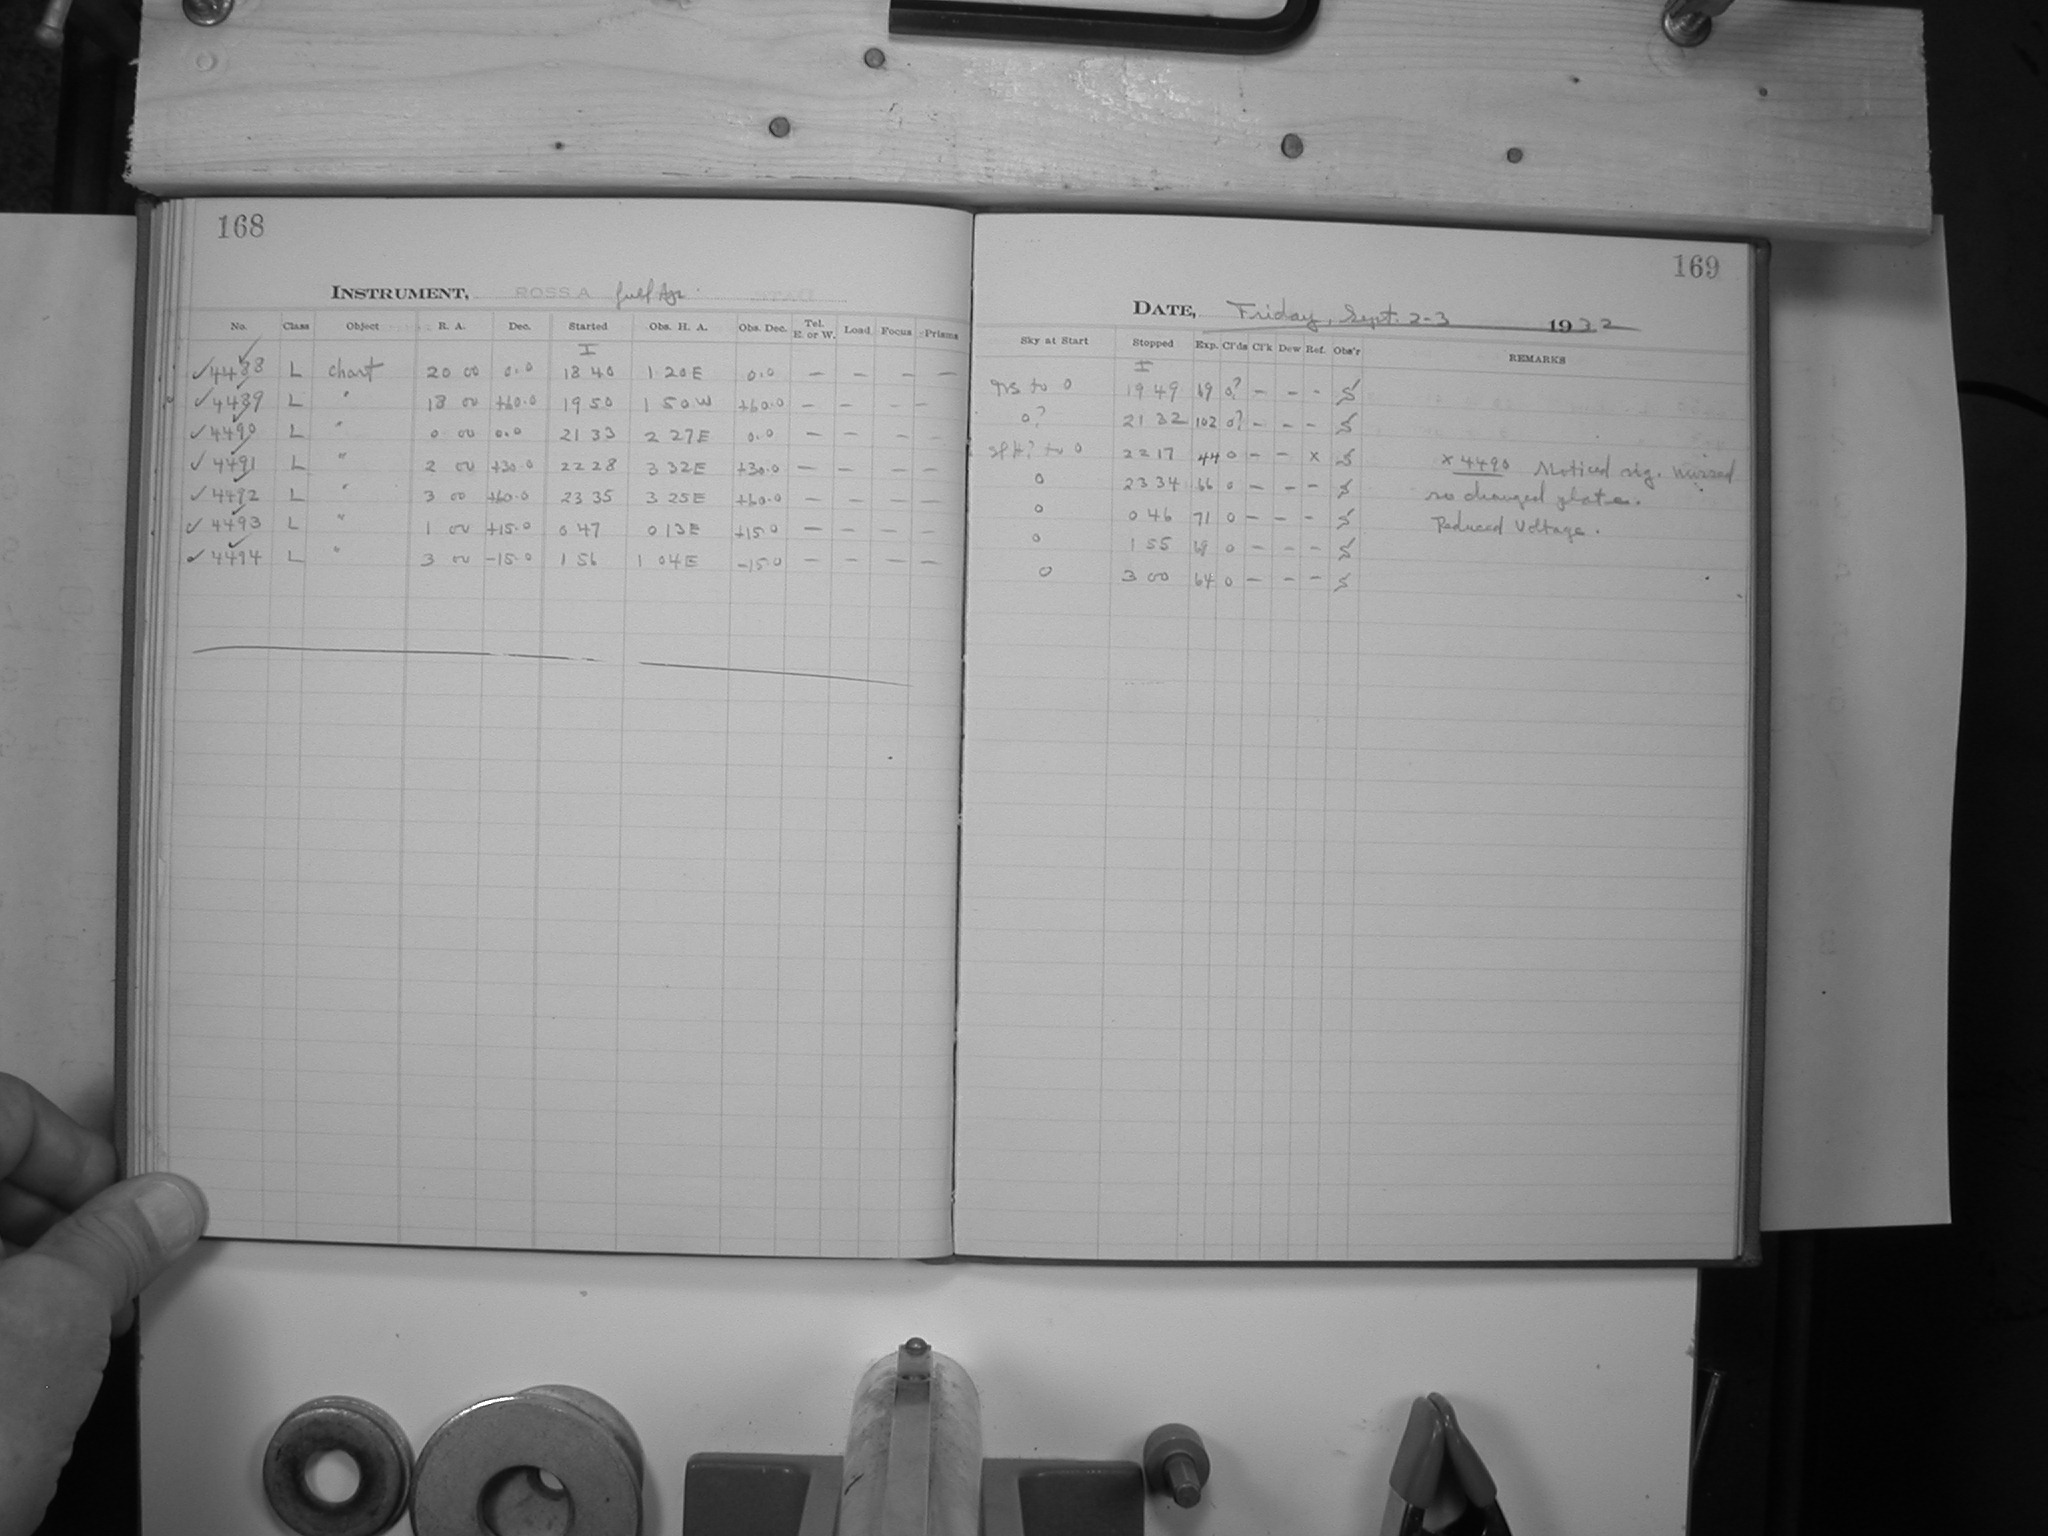 168
INSTRUMENT, ROSS A full Apr.
No. Class Object R. A. Dec. Started Obs. H. A. Obs. Dec. Tel. E. or W. Load Focus Prisms
I
✓4488 L chart 20 00 0.0 18 40 1 20E 0.0 — — — —
✓4489 L " 18 00 +60.0 19 50 1 50W +60.0 — — — —
✓4490 L " 0 00 0.0 21 33 2 27E 0.0 — — — —
✓4491 L " 2 00 +30.0 22 28 3 32E +30.0 — — — —
✓4492 L " 3 00 +60.0 23 35 3 25E +60.0 — — — —
✓4493 L " 1 00 +15.0 0 47 0 13E +15.0 — — — —
✓4494 L " 3 00 -15.0 1 56 1 04E -15.0 — — — —
169
DATE, Friday, Sept. 2-3 1932
Sky at Start Stopped Exp. Cl'ds Cl'k Dew Ref. Obs'r REMARKS
I
to 0 19 49 69 0? — — -
0? 21 32 102 0? — — -
to 0 22 17 44 0 — — x
0 23 34 66 0 — — -
0 0 46 71 0 — — -
0 1 55 68 0 — — -
0 3 00 64 0 — — -
x 4490 Noticed sig. missed
so changed plate.
Reduced Voltage.